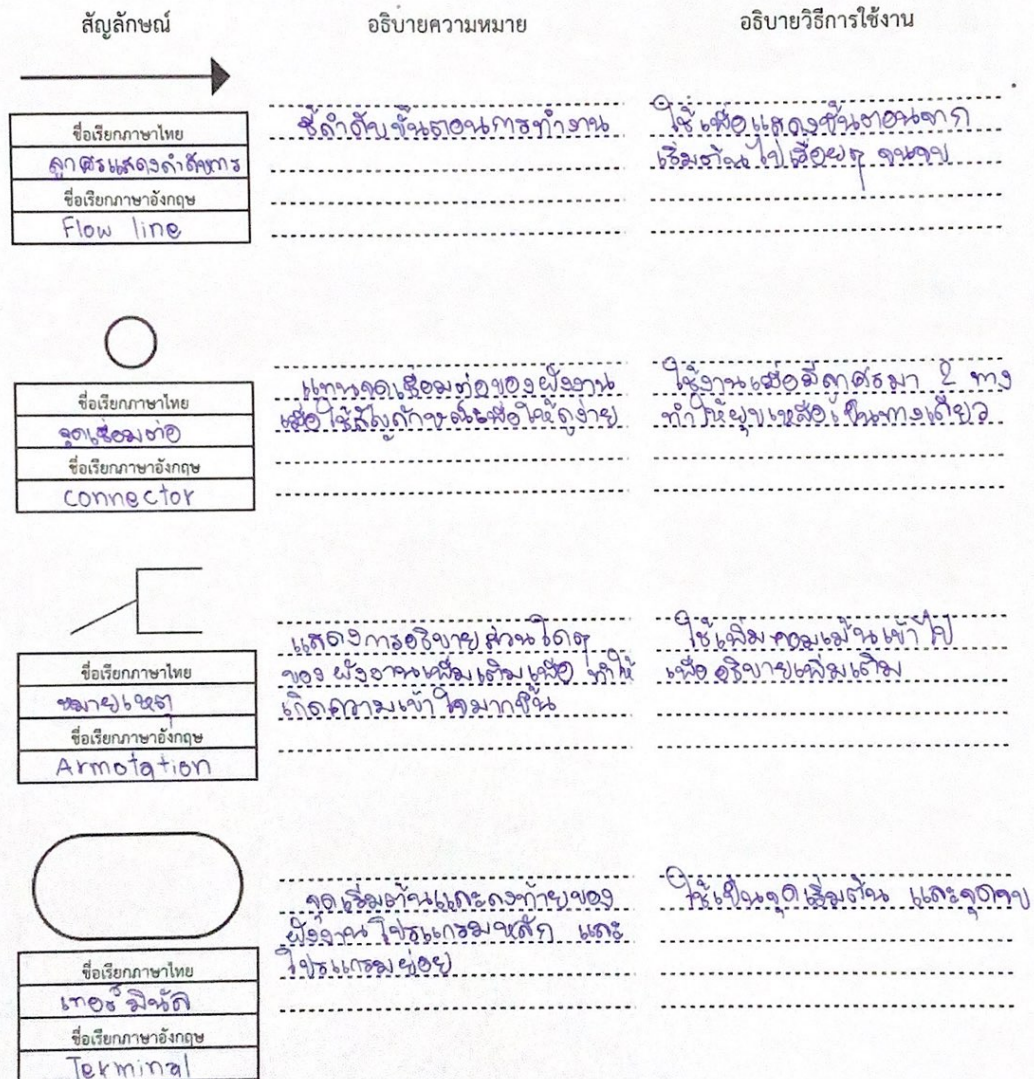 สัญลักษณ์ อธิบายความหมาย อธิบายวิธีการใช้งาน
ชื่อเรียกภาษาไทย
ลูกศรแสดงลำดับการ
ชื่อเรียกภาษาอังกฤษ
Flow line
ชี้ลำดับขั้นตอนการทำงาน
ใช้เพื่อแสดงขั้นตอนจาก
เริ่มต้นไปเรื่อยๆ จนจบ
ชื่อเรียกภาษาไทย
จุดเชื่อมต่อ
ชื่อเรียกภาษาอังกฤษ
connector
แทนจุดเชื่อมต่อของผังงาน
เมื่อใช้สัญลักษณ์เพื่อให้ดูง่าย
ใช้งานเมื่อมีลูกศรมา 2 ทาง
ทำให้ยุบเหลือเป็นทางเดียว
ชื่อเรียกภาษาไทย
หมายเหตุ
ชื่อเรียกภาษาอังกฤษ
Armotation
แสดงการอธิบายส่วนใดๆ
ของผังงานเพิ่มเติมเพื่อ ทำให้
เกิดความเข้าใจมากขึ้น
ใช้เพิ่มคอมเม้นเข้าไป
เพื่ออธิบายเพิ่มเติม
ชื่อเรียกภาษาไทย
เทอร์มินัล
ชื่อเรียกภาษาอังกฤษ
Terminal
จุดเริ่มต้นและลงท้ายของ
ผังงานโปรแกรมหลัก และ
โปรแกรมย่อย
ใช้เป็นจุดเริ่มต้น และจุดจบ